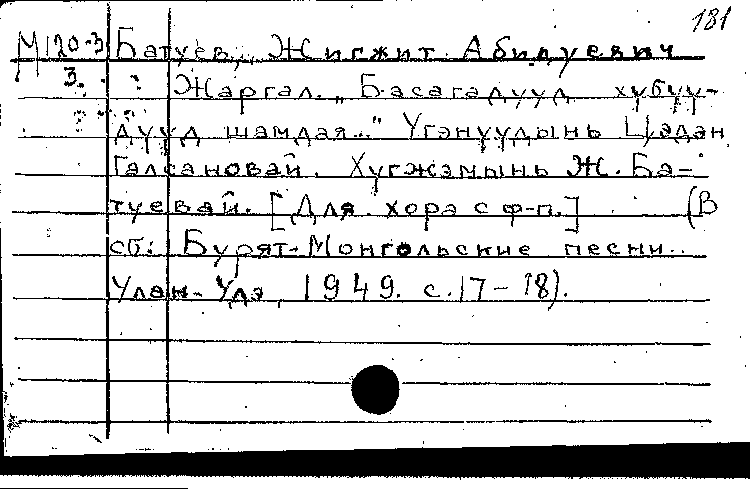 181
М120-3 Батуев, Жигжит Абидуевич
3. Жаргал. „Басагадууд хубуу-
дууд шамдая..." Угэнуудынь Цэдэн
Галсановай. Хугжэмынь Ж. Ба-
туевай. [Для хора с ф-п.] (В
сб: Бурят-Монгольские песни.
Улан-Удэ, 1949. с. 17-18).